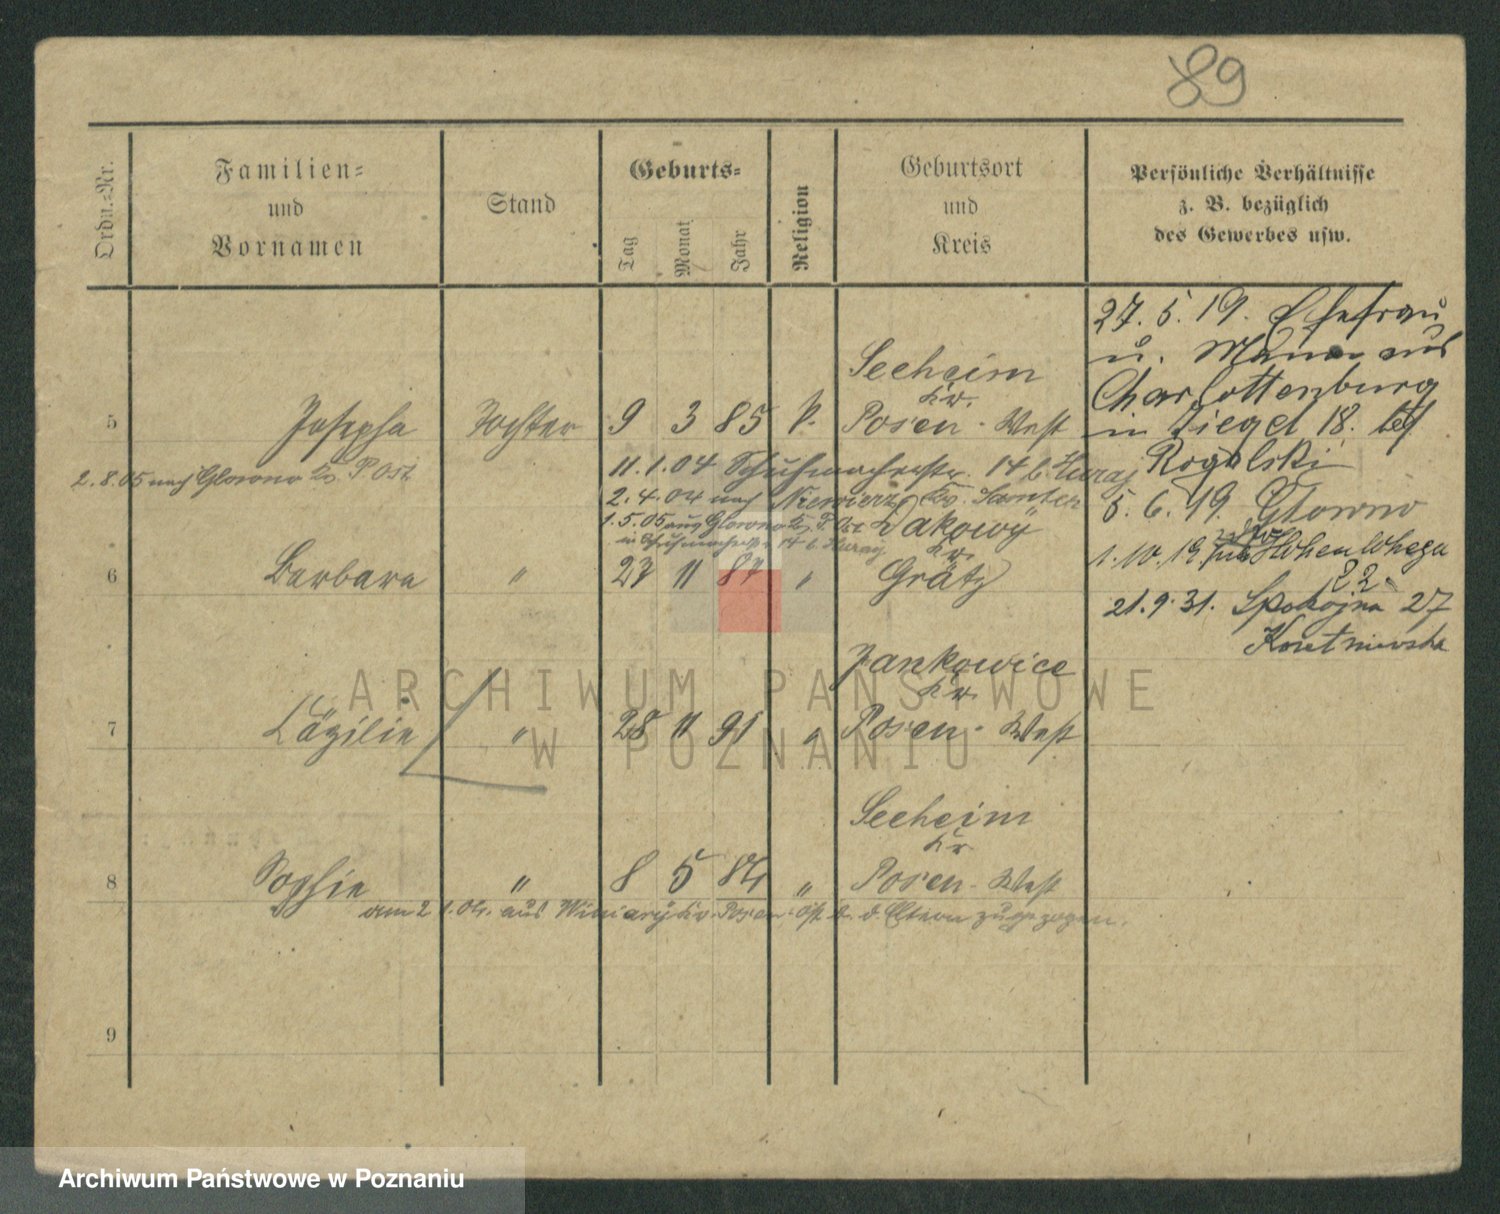 89
Ordn.-Nr.
Familien-
und
Vornamen
Stand
Geburts-
Tag
Monat
Jahr
Religion
Geburtsort
und
Kreis
Persönliche Verhältnisse
z. B. bezüglich
des Gewerbes usw.
27. 5. 19. Ehefrau
u. Mann aus
Charlottenburg
in Ziegel 18. bei
Rogalski
5. 6. 19. Glowno
1. 10. 19. Hohenlohe
22
21. 9. 31. Spokojna 27
Seeheim
Kr.
5 Josepha Tochter 9 3 85 k. Posen-West
2. 8. 05 nach Glowno Kr. P. Ost
11. 1. 04 Schuhmacherstr. 14 b.
2. 4. 04 nach Niewierz Kr. Samter
1. 5. 05 aus Glowno Kr. P. Ost
in Schuhmacherstr. 14 b.
Lakowy
Kr.
6 Barbara " 27 11 87 " Grätz
Jankowice
Kr.
7 Cäzilie " 28 11 91 " Posen-West
Seeheim
Kr.
8 Sophie " 8 5 84 " Posen-West
am 2. 1. 04. aus Winiary Kr. Posen-Ost z. d. Eltern zugezogen.
9
ARCHIWUM PAŃSTWOWE
W POZNANIU
Archiwum Państwowe w Poznaniu